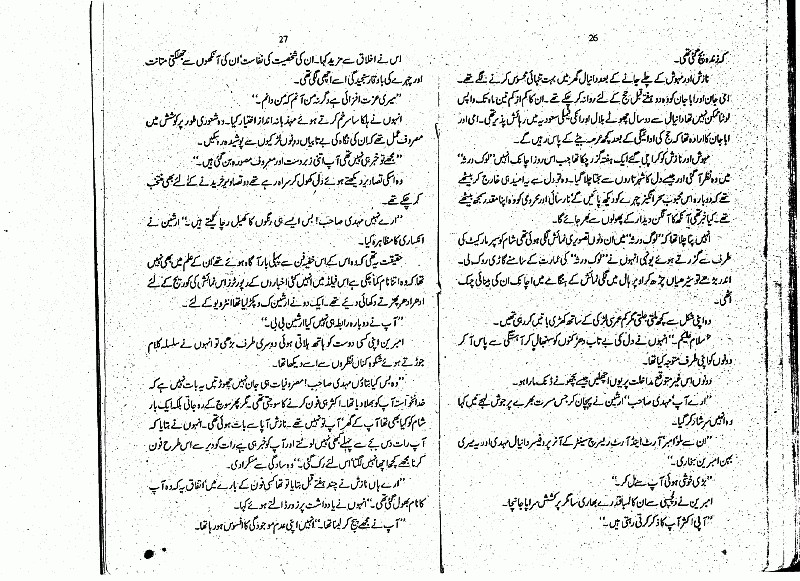 26
کر زندہ بچ گئی تھی۔
نازش اور مہوش کے چلے جانے کے بعد دانیال گھر میں بہت تنہائی محسوس کرنے لگے تھے۔
امی جان اور ابا جان کو وہ دو ہفتے قبل حج کے لئے روانہ کر چکے تھے۔ ان کا کم از کم تین ماہ تک واپس
لوٹنا ممکن نہیں تھا دانیال سے دو سال چھوٹے بلال اور انکی فیملی سعودیہ میں رہائش پذیر تھی۔ امی اور
ابا جان کا ارادہ تھا کہ حج کی ادائیگی کے بعد کچھ عرصہ بیٹے کے پاس رہیں گے۔
مہوش اور نازش کو کراچی گئے ایک ہفتہ گزر چکا تھا جب اس روز اچانک انہیں "لوک ورثہ"
میں وہ نظر آ گئی اور جیسے دل کا شہر تاروں سے سجتا چلا گیا۔ وہ تو دل سے یہ امید ہی خارج کر بیٹھے
تھے کہ دوبارہ اس محبوب سحر انگیز چہرے کو دیکھ پائیں گے نارسائی اور محرومی کو وہ اپنا مقدر سمجھ بیٹھے
تھے۔ کیا خبر تھی آنکھ کا آنگن دیدار کے پھولوں سے بھر جائے گا۔
انہیں پتا چلا تھا کہ "لوک ورثہ" میں ان دونوں تصویری نمائش لگی ہوئی تھی شام کو سپر مارکیٹ کی
طرف سے گزرتے ہوئے یونہی انہوں نے "لوک ورثہ" کی عمارت کے سامنے گاڑی روک لی۔
اندر بڑھے تو سیڑھیاں چڑھ کر اوپر ہال میں لگی نمائش کے ہنگامے میں اچانک ان کی بینائی چمک
اٹھی۔
وہ اپنی شکل سے کچھ ملتی جلتی مگر کم عمر سی لڑکی کے ساتھ کھڑی باتیں کر رہی تھیں۔
"سلام علیکم۔" انہوں نے دل کی بے تاب دھڑکنوں کو سنبھالا پھر آہستگی سے پاس آ کر
دونوں کو اپنی طرف متوجہ کیا تھا۔
دونوں اس غیر متوقع مداخلت پر یوں اچھلیں جیسے بچھو نے ڈنک مارا ہو۔
"ارے آپ! مہدی صاحب" ارشین نے پہچان کر جس مسرت بھرے پرجوش لہجے میں کہا
وہ انہیں سرشار کر گیا۔
"ان سے ملو امبر آرٹ اینڈ آرٹ ریسرچ سینٹر کے آنر پروفیسر دانیال مہدی اور یہ میری
بہن امبرین بخاری۔"
"بڑی خوشی ہوئی آپ سے مل کر۔"
امبرین نے دلچسپی سے ان کا لمبا قد رے بھاری سانگر پرکشش سراپا جانچا۔
"آپی اکثر آپ کا ذکر کرتی رہتی ہیں۔"
27
اس نے اخلاق سے مزید کہا۔ ان کی شخصیت کی نفاست' ان کی آنکھوں سے جھلکتی متانت
اور چہرے کی باوقار سنجیدگی اسے اچھی لگی تھی۔
"میری عزت افزائی ہے وگرنہ من آنم کہ من دانم۔"
انہوں نے ہلکا سا سر خم کرتے ہوئے مہذبانہ انداز اختیار کیا۔ وہ شعوری طور پر کوشش میں
مصروف عمل تھے کہ ان کی نگاہ کی بے تابیاں دونوں لڑکیوں سے پوشیدہ رہ سکیں۔
"مجھے تو خبر ہی نہیں تھی آپ اتنی زبردست اور معروف مصورہ بن گئی ہیں۔"
وہ اسکی تصاویر دیکھتے ہوئے دلی کھول کر سراہ رہے تھے دو تصاویر خریدنے کے لئے بھی منتخب
کر چکے تھے۔
"ارے نہیں مہدی صاحب! بس ایسے ہی رنگوں کا کھیل رچا لیتے ہیں۔" ارشین نے
انکساری کا مظاہرہ کیا۔
حقیقت یہ تھی کہ وہ اس کے اس خفیہ فن سے پہلی بار آگاہ ہوئے تھے ان کے علم میں بھی نہیں
تھا کہ وہ اتنا نام کما چکی ہے اس فیلڈ میں انہیں کئی اخباروں کے رپورٹرز اس نمائش کی کوریج کے لئے
ادھر ادھر پھرتے دکھائی دیئے تھے۔ ایک دو نے ارشین کو پکڑ لیا تھا انٹرویو کے لئے۔
"آپ نے دوبارہ رابطہ ہی نہیں کیا ارشین بی بی۔"
امبرین اپنی کسی دوست کو ہاتھ ہلاتی ہوئی دوسری طرف بڑھی تو انہوں نے سلسلہ کلام
جوڑتے ہوئے شکوہ کناں نظروں سے اسے دیکھا تھا۔
"وہ بس کیا بتاؤں مہدی صاحب! مصروفیات ہی جان نہیں چھوڑتیں یہ بات نہیں ہے کہ
خدانخواستہ آپ کو بھلا دیا تھا۔ اکثر ہی فون کرنے کا سوچتی تھی۔ مگر پھر سوچ کے رہ جاتی بلکہ ایک بار
شام کو کیا بھی تھا آپ کے گھر' آپ تو نہیں تھے۔ نازش آپا سے بات ہوئی تھی۔ انہوں نے بتایا کہ
آپ رات دس بجے سے پہلے کبھی نہیں لوٹتے اور آپ کو خبر ہی ہے رات کو دیر سے اس طرح فون
کرنا مجھے کچھ اچھا نہیں لگتا' اس لئے رک گئی۔" وہ سادگی سے مسکرا دی۔
"ارے ہاں نازش نے چند ہفتے قبل بتایا تو تھا کسی فون کے بارے میں اتفاق یہ کہ وہ آپ
کا نام بھول گئی تھی۔" انہوں نے یادداشت پر زور ڈالتے ہوئے کہا۔
"آپ نے مجھے پیج کر لینا تھا۔" انہیں اپنی عدم موجودگی کا افسوس ہو رہا تھا۔